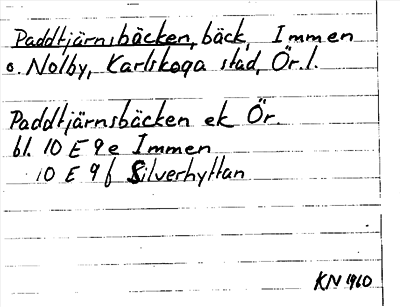 Paddtjärnsbäcken, bäck, Immen
o. Nolby, Karlskoga stad, Ör. l.
Paddtjärnsbäcken ek Ör.
bl. 10 E 9e Immen
10 E 9f Silverhyttan
KN 1960